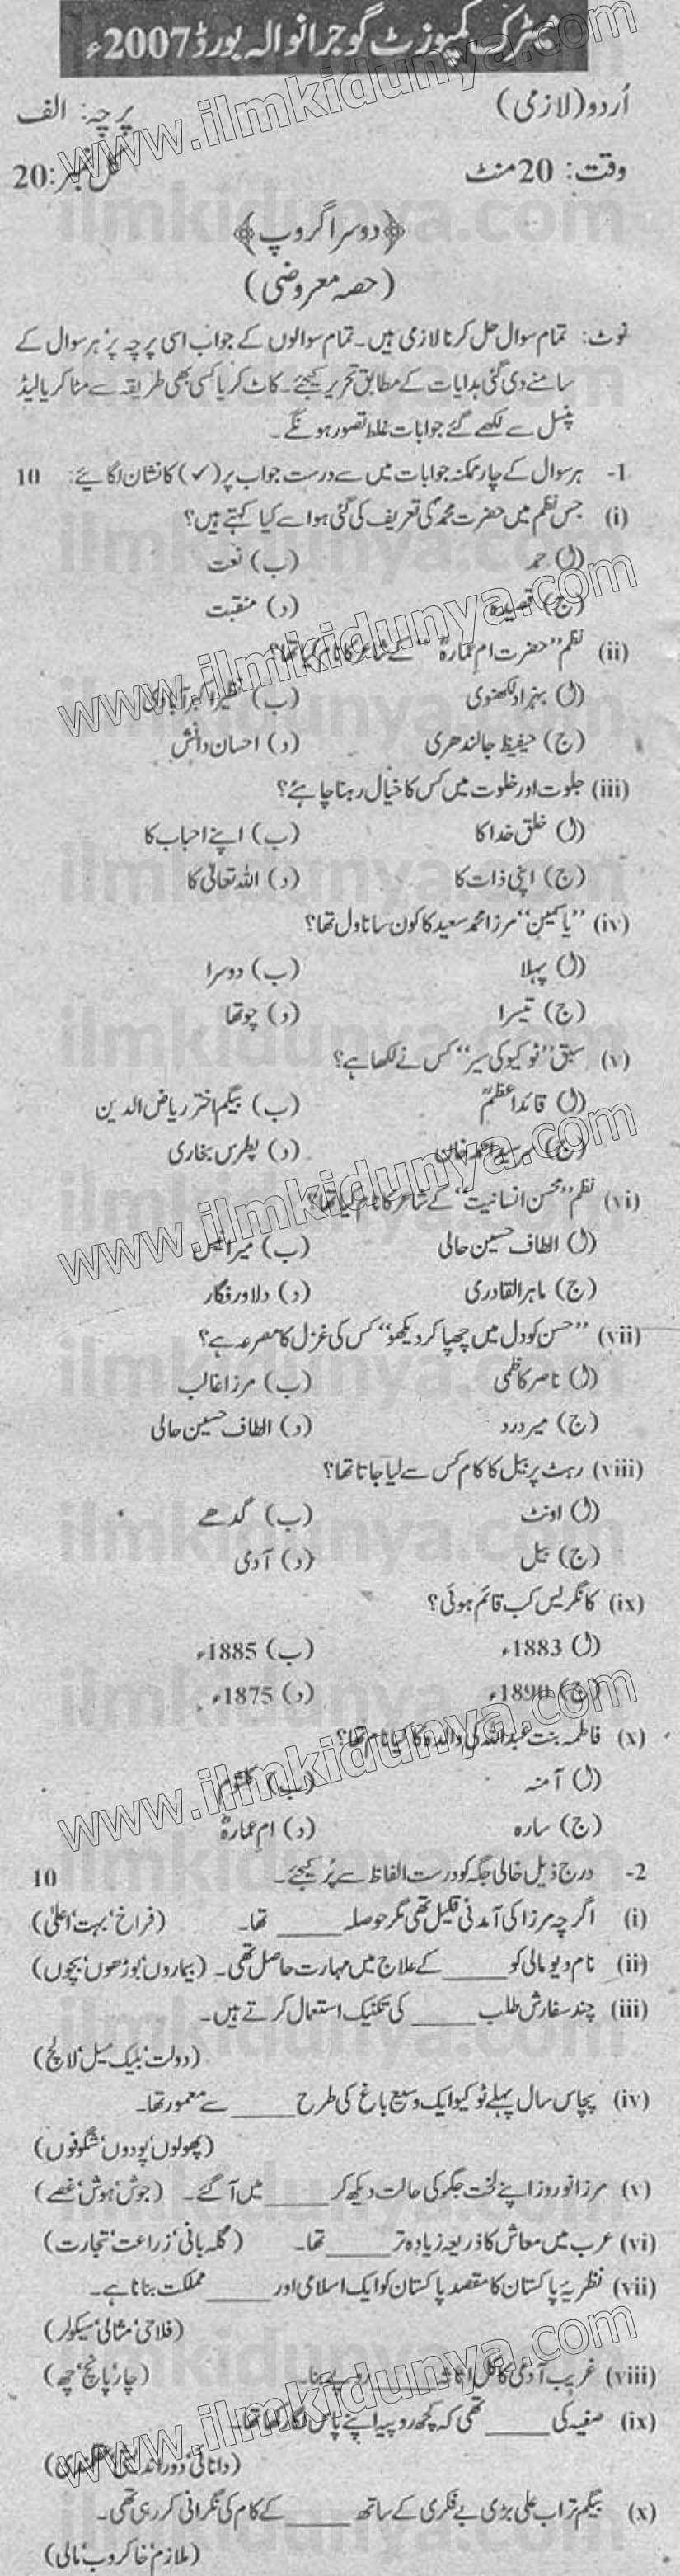 میٹرک کمپوزٹ گوجرانوالہ بورڈ 2007ء
اُردو (لازمی) پرچہ: الف
وقت: 20 منٹ کل نمبر: 20
﴿دوسرا گروپ﴾
(حصہ معروضی)
نوٹ: تمام سوال حل کرنا لازمی ہیں۔ تمام سوالوں کے جواب اسی پرچہ پر ہر سوال کے
سامنے دی گئی ہدایات کے مطابق تحریر کیجئے۔ کاٹ کر یا کسی بھی طریقہ سے مٹا کر یا لیڈ
پنسل سے لکھے گئے جوابات غلط تصور ہونگے۔
1- ہر سوال کے چار ممکنہ جوابات میں سے درست جواب پر (✓) کا نشان لگائیے: 10
(i) جس نظم میں حضرت محمدؐ کی تعریف کی گئی ہو اسے کیا کہتے ہیں؟
(ا) حمد (ب) نعت
(ج) قصیدہ (د) منقبت
(ii) نظم "حضرت ام عمارہؓ" کے شاعر کا نام کیا تھا؟
(ا) بہزاد لکھنوی (ب) نظیر اکبر آبادی
(ج) حفیظ جالندھری (د) احسان دانش
(iii) جلوت اور خلوت میں کس کا خیال رہنا چاہئے؟
(ا) خلق خدا کا (ب) اپنے احباب کا
(ج) اپنی ذات کا (د) اللہ تعالیٰ کا
(iv) "یاسمین" مرزا محمد سعید کا کون سا ناول تھا؟
(ا) پہلا (ب) دوسرا
(ج) تیسرا (د) چوتھا
(v) سبق "ٹوکیو کی سیر" کس نے لکھا ہے؟
(ا) قائداعظمؒ (ب) بیگم اختر ریاض الدین
(ج) سرسید احمد خان (د) پطرس بخاری
(vi) نظم "محسن انسانیت" کے شاعر کا نام کیا تھا؟
(ا) الطاف حسین حالی (ب) میر انیس
(ج) ماہر القادری (د) دلاور فگار
(vii) "حسن کو دل میں چھپا کر دیکھو" کس کی غزل کا مصرعہ ہے؟
(ا) ناصر کاظمی (ب) مرزا غالب
(ج) میر درد (د) الطاف حسین حالی
(viii) رہٹ پر بیل کا کام کس سے لیا جاتا تھا؟
(ا) اونٹ (ب) گدھے
(ج) بیل (د) آدمی
(ix) کانگریس کب قائم ہوئی؟
(ا) 1883ء (ب) 1885ء
(ج) 1890ء (د) 1875ء
(x) فاطمہ بنت عبداللہ کی والدہ کا کیا نام تھا؟
(ا) آمنہ (ب) کلثوم
(ج) سارہ (د) ام عمارہؓ
2- درج ذیل خالی جگہ کو درست الفاظ سے پُر کیجئے۔ 10
(i) اگرچہ مرزا کی آمدنی قلیل تھی مگر حوصلہ _____ تھا۔ (فراخ، بہت، اعلیٰ)
(ii) نام دیو مالی کو _____ کے علاج میں مہارت حاصل تھی۔ (بیماروں، بوڑھوں، بچوں)
(iii) چند سفارش طلب _____ کی تکنیک استعمال کرتے ہیں۔
(دولت، بلیک میل، لالچ)
(iv) پچاس سال پہلے ٹوکیو ایک وسیع باغ کی طرح _____ سے معمور تھا۔
(پھولوں، پودوں، شگوفوں)
(v) مرزا نوروز اپنے لخت جگر کی حالت دیکھ کر _____ میں آ گئے۔ (جوش، ہوش، غصے)
(vi) عرب میں معاش کا ذریعہ زیادہ تر _____ تھا۔ (گلہ بانی، زراعت، تجارت)
(vii) نظریۂ پاکستان کا مقصد پاکستان کو ایک اسلامی اور _____ مملکت بنانا ہے۔
(فلاحی، مثالی، سیکولر)
(viii) غریب آدمی کا کل اثاثہ _____ روپے بنا۔ (چار، پانچ، چھ)
(ix) صفیہ کی _____ تھی کہ کچھ روپیہ اپنے پاس لگا رکھا تھا۔
(دانائی، دور اندیشی، عقلمندی)
(x) بیگم تراب علی بڑی بے فکری کے ساتھ _____ کے کام کی نگرانی کر رہی تھی۔
(ملازم، خاکروب، مالی)
www.ilmkidunya.com
www.ilmkidunya.com
www.ilmkidunya.com
www.ilmkidunya.com
www.ilmkidunya.com